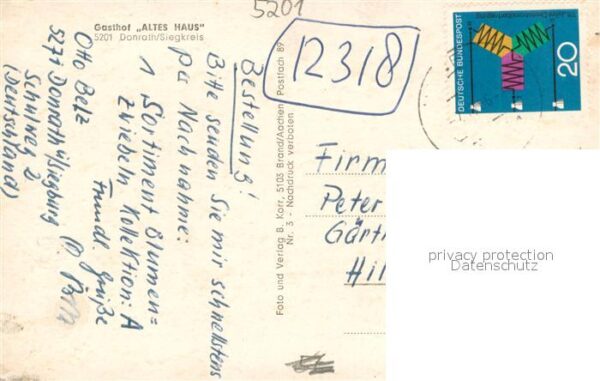 5201
Gasthof „ALTES HAUS"
5201 Donrath/Siegkreis
12318
Bestellung!
Bitte senden Sie mir schnellstens
pa Nachnahme:
1 Sortiment Blumen=
zwiebeln, Kollektion: A
Freundl. Grüße
Otto Belz
Donrath/Siegburg
Schulweg 2
(Deutschland)
Foto und Verlag B. Korr, 5103 Brand/Aachen · Postfach 89
Nr. 3 - Nachdruck verboten
DEUTSCHE BUNDESPOST
20
Firm
Peter
Gärtn
Hil
privacy protection
Datenschutz